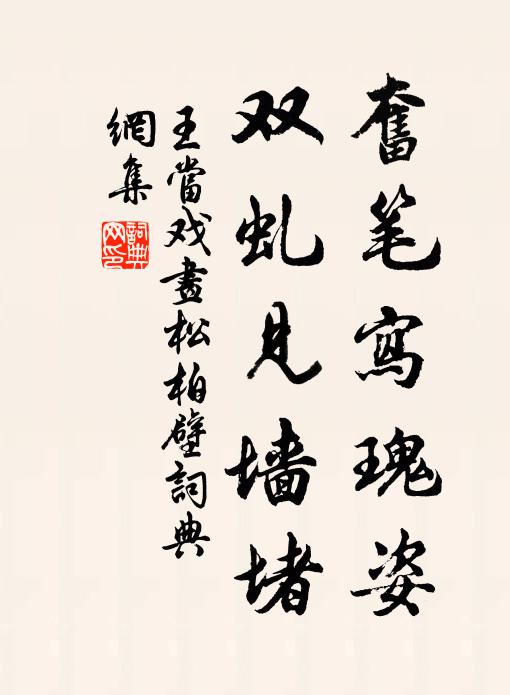 奮笔寫瑰姿
双虬見墙堵
王當戏畫松柏壁詞典
網集
詞典
网印